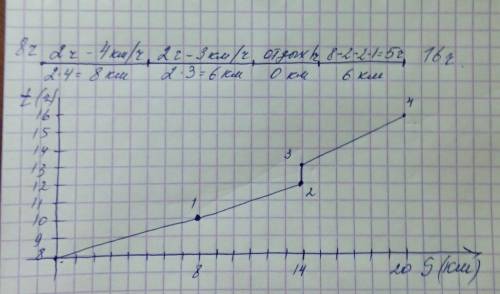 8ч 2ч - 4км/ч 2ч - 3км/ч отдых 8-2-2-1=5ч 16ч.
2·4= 8км 2·3=6км 0 км 6 км
t(ч)
16
15
14
13
12
11
10
9
8
1
2
3
4
8 14 20 S(км)